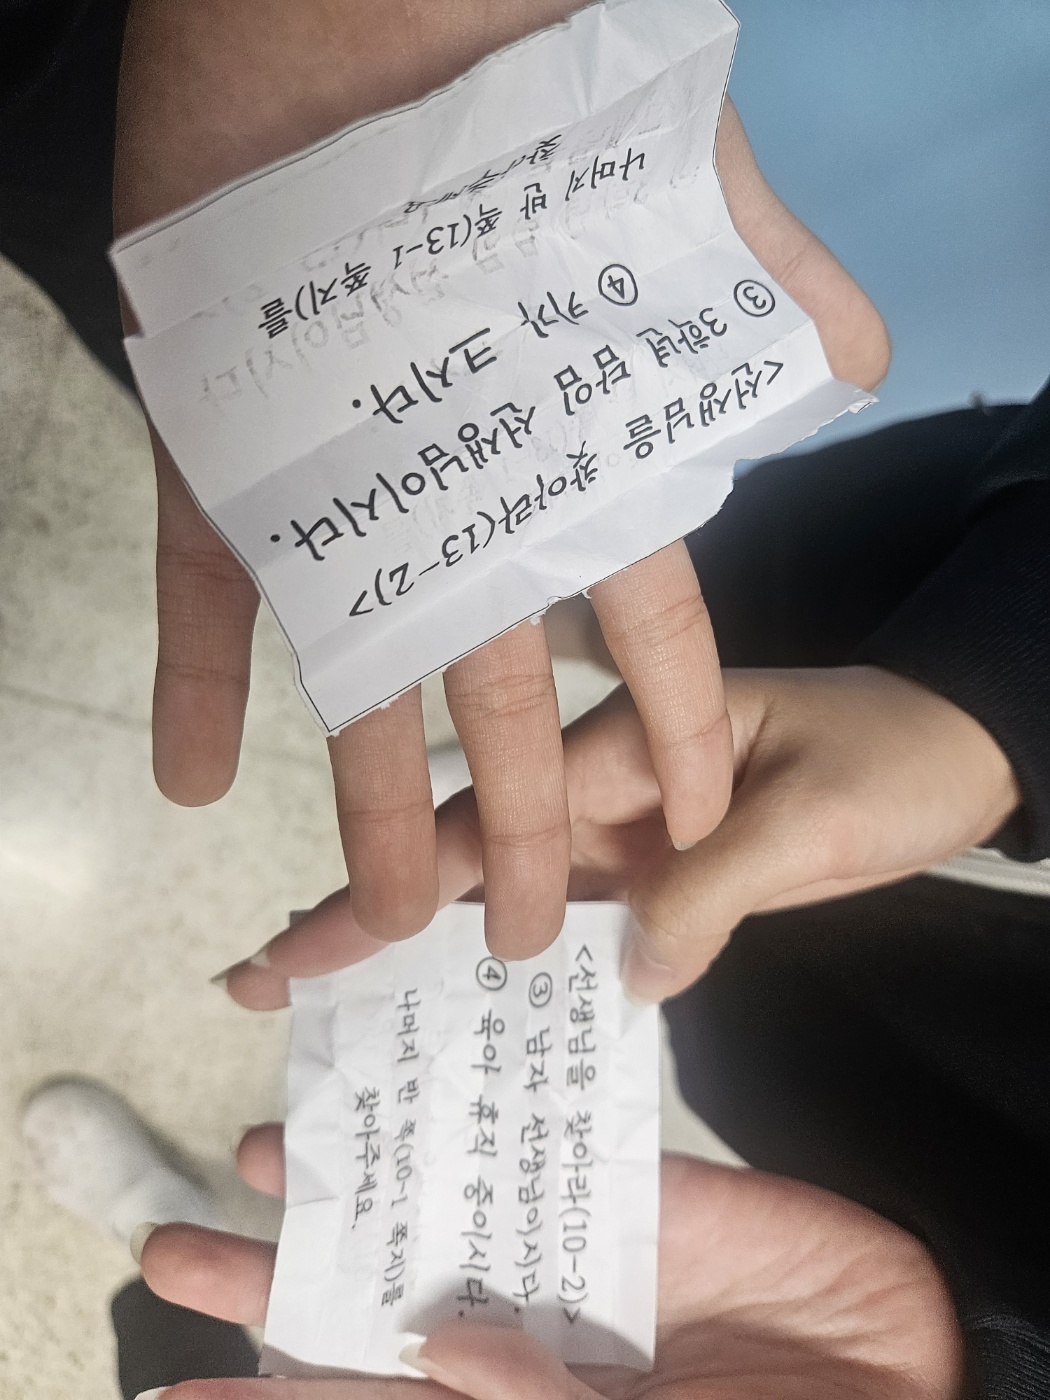 <선생님을 찾아라(13-2)>
③ 3학년 담임 선생님이시다.
④ 키가 크시다.
나머지 반 쪽(13-1 쪽지)를
찾아주세요
<선생님을 찾아라(10-2)>
③ 남자 선생님이시다.
④ 육아 휴직 중이시다.
나머지 반 쪽(10-1 쪽지)를
찾아주세요.